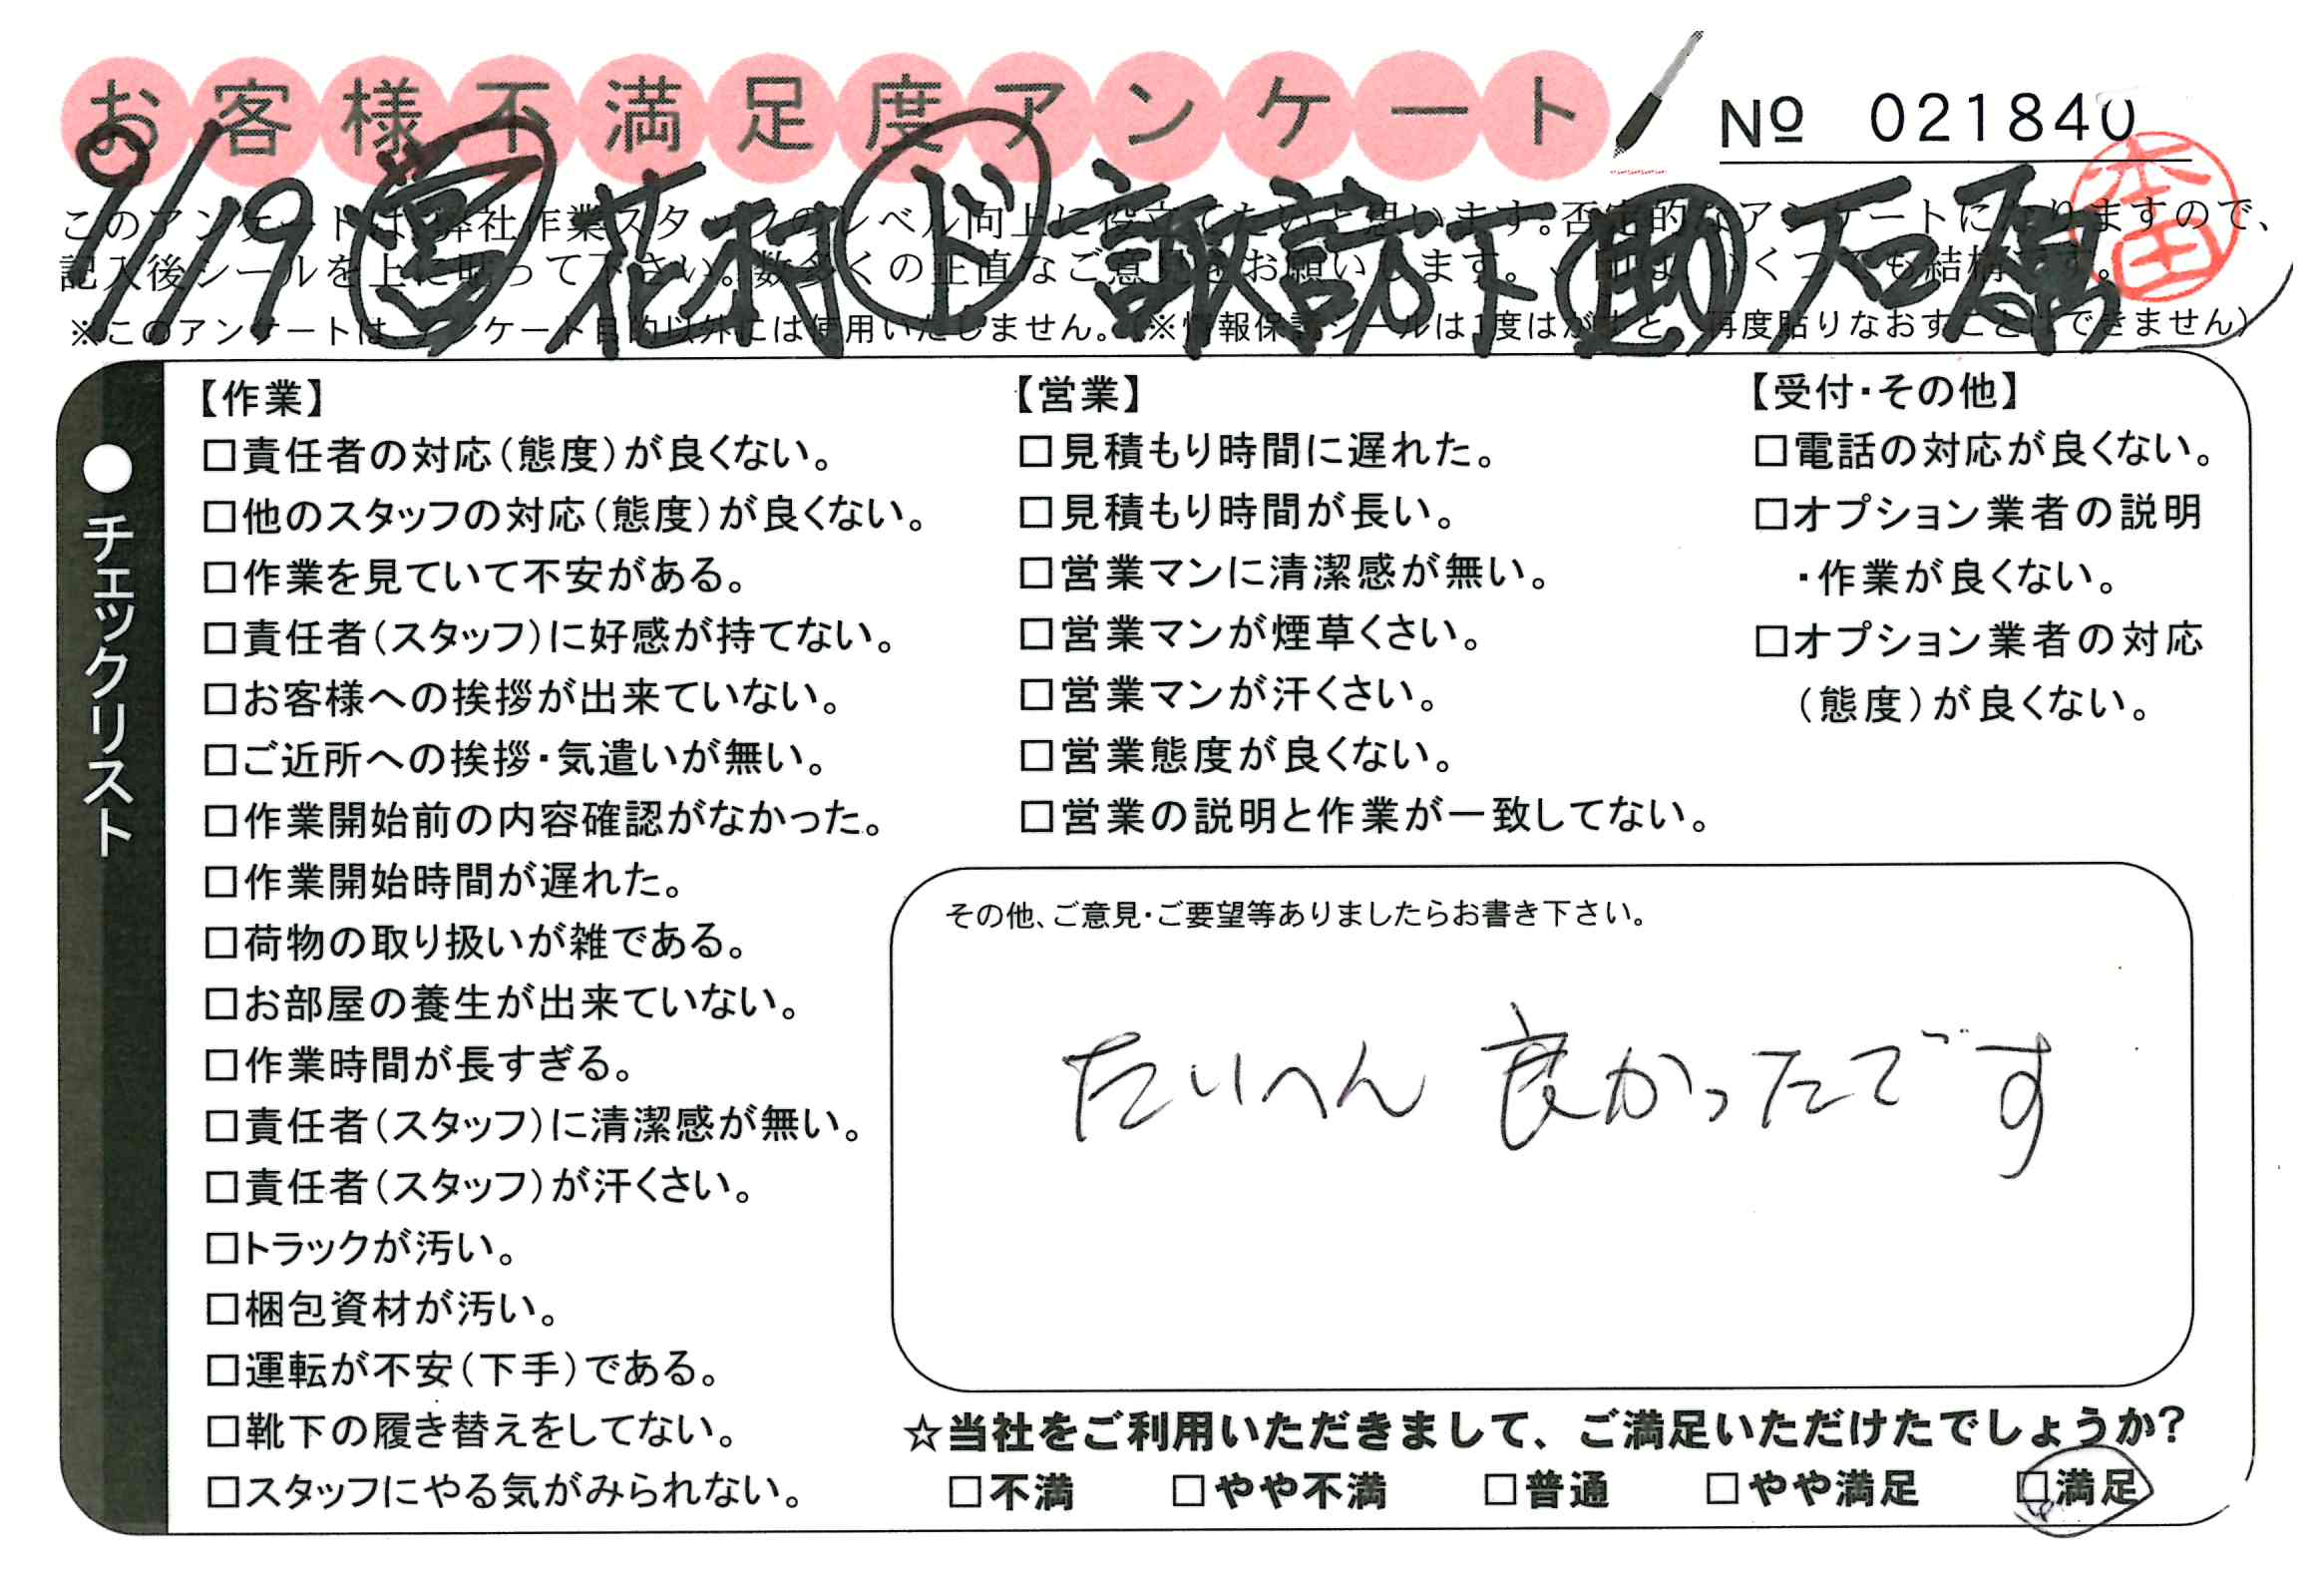 お客様不満足度アンケート
№ 021840
9/19 営 花村 ド 諏訪下 助 石原
本田
このアンケートは 弊社作業スタッフのレベル向上に役立てたいと思います。否定的なアンケートになりますので、
記入後シールを上に貼って下さい。数多くの正直なご意見をお願いします。
※このアンケートは、アンケート目的以外には使用いたしません。 ※情報保護シールは1度はがすと、再度貼りなおすことはできません)
●チェックリスト
【作業】
□責任者の対応(態度)が良くない。
□他のスタッフの対応(態度)が良くない。
□作業を見ていて不安がある。
□責任者(スタッフ)に好感が持てない。
□お客様への挨拶が出来ていない。
□ご近所への挨拶・気遣いが無い。
□作業開始前の内容確認がなかった。
□作業開始時間が遅れた。
□荷物の取り扱いが雑である。
□お部屋の養生が出来ていない。
□作業時間が長すぎる。
□責任者(スタッフ)に清潔感が無い。
□責任者(スタッフ)が汗くさい。
□トラックが汚い。
□梱包資材が汚い。
□運転が不安(下手)である。
□靴下の履き替えをしてない。
□スタッフにやる気がみられない。
【営業】
□見積もり時間に遅れた。
□見積もり時間が長い。
□営業マンに清潔感が無い。
□営業マンが煙草くさい。
□営業マンが汗くさい。
□営業態度が良くない。
□営業の説明と作業が一致してない。
【受付・その他】
□電話の対応が良くない。
□オプション業者の説明
・作業が良くない。
□オプション業者の対応
(態度)が良くない。
その他、ご意見・ご要望等ありましたらお書き下さい。
たいへん 良かったです
☆当社をご利用いただきまして、ご満足いただけたでしょうか?
□不満 □やや不満 □普通 □やや満足 □満足